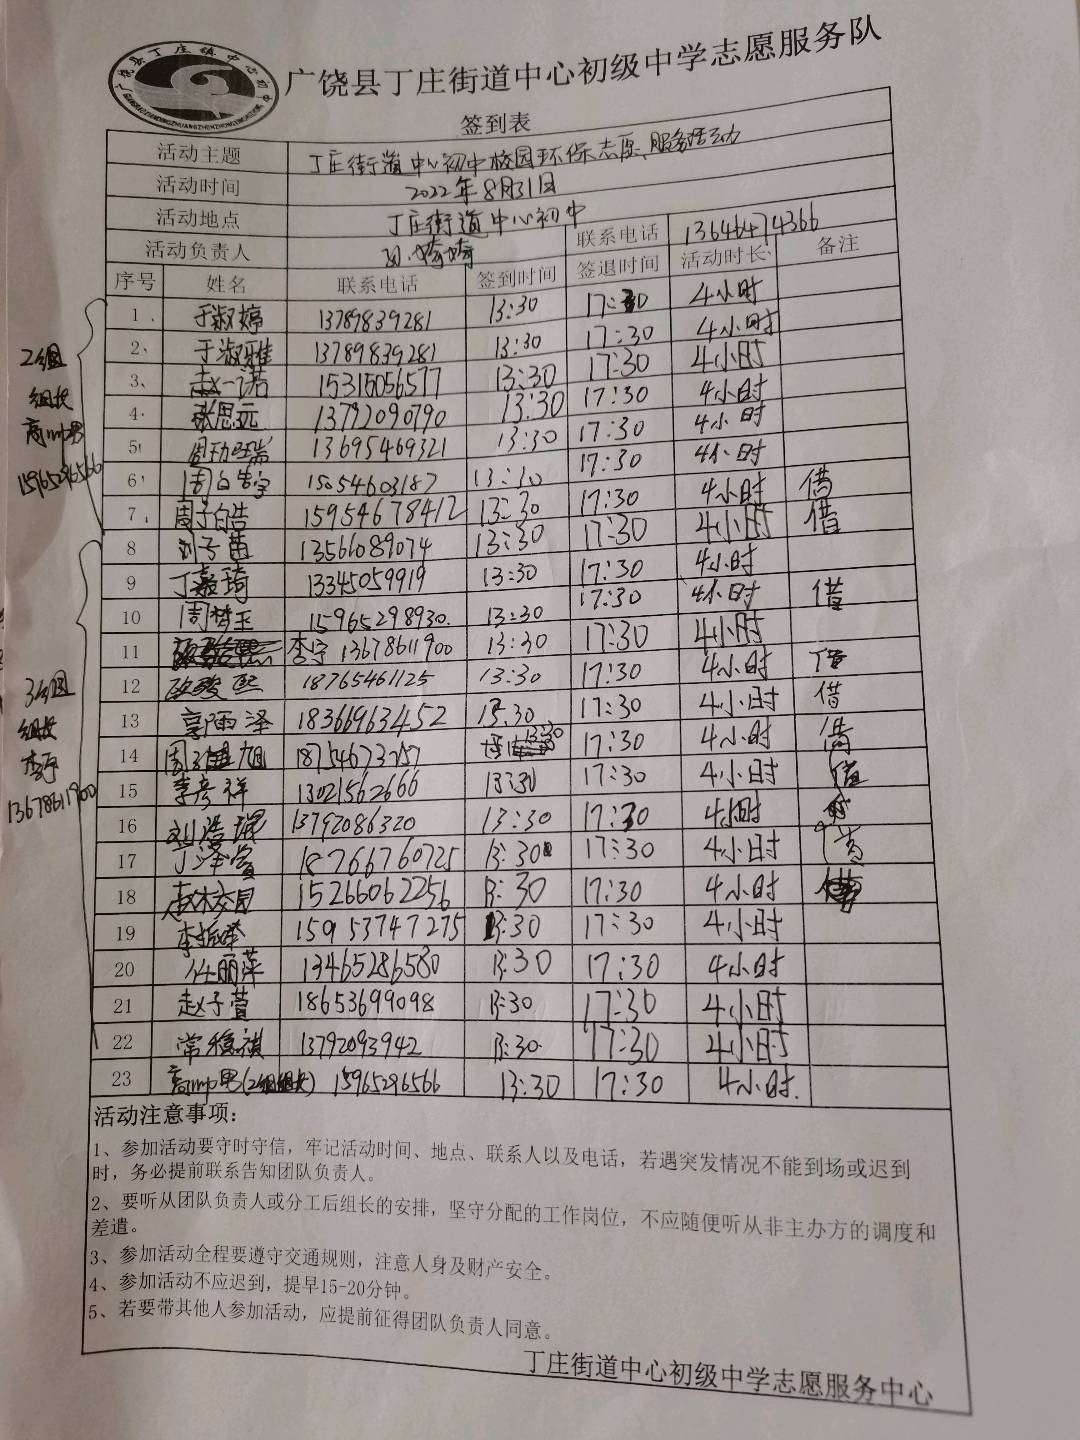 广饶县丁庄镇中心初中
广饶县丁庄街道中心初级中学志愿服务队
签到表
活动主题 丁庄街道中心初中校园环保志愿服务活动
活动时间 2022年8月31日
活动地点 丁庄街道中心初中
活动负责人 联系电话 13646474366
序号 姓名 联系电话 签到时间 签退时间 活动时长 备注
1 于淑婷 13789839281 13:30 17:30 4小时
2 于淑雅 13789839281 13:30 17:30 4小时
3 赵一诺 15315056577 13:30 17:30 4小时
4 张思远 13792090790 13:30 17:30 4小时
5 13695469321 13:30 17:30 4小时
6 15054603187 13:30 17:30 4小时 借
7 周子皓 15954678412 13:30 17:30 4小时 借
8 13566089074 13:30 17:30 4小时
9 丁嘉琦 13345059919 13:30 17:30 4小时
10 周梦玉 15965298930 13:30 17:30 4小时 借
11 李宇 13678611900 13:30 17:30 4小时
12 骏熙 18765461125 13:30 17:30 4小时 借
13 郭雨泽 18366963452 13:30 17:30 4小时 借
14 周 旭 18754673757 13:30 17:30 4小时 借
15 李彦祥 13021562666 13:30 17:30 4小时 借
16 刘浩琨 13792086320 13:30 17:30 4小时
17 丁泽宾 18766760725 13:30 17:30 4小时 借
18 15266062256 13:30 17:30 4小时
19 李振华 15953747275 13:30 17:30 4小时
20 任丽萍 13465286580 13:30 17:30 4小时
21 赵子萱 18653699098 13:30 17:30 4小时
22 常稳祺 13792093942 13:30 17:30 4小时
23 高帅男(2组组长) 15965296566 13:30 17:30 4小时
2组
组长
高帅男
15965296566
3组
组长
李宇
13678611900
活动注意事项:
1、参加活动要守时守信，牢记活动时间、地点、联系人以及电话，若遇突发情况不能到场或迟到
时，务必提前联系告知团队负责人。
2、要听从团队负责人或分工后组长的安排，坚守分配的工作岗位，不应随便听从非主办方的调度和
差遣。
3、参加活动全程要遵守交通规则，注意人身及财产安全。
4、参加活动不应迟到，提早15-20分钟。
5、若要带其他人参加活动，应提前征得团队负责人同意。
丁庄街道中心初级中学志愿服务中心